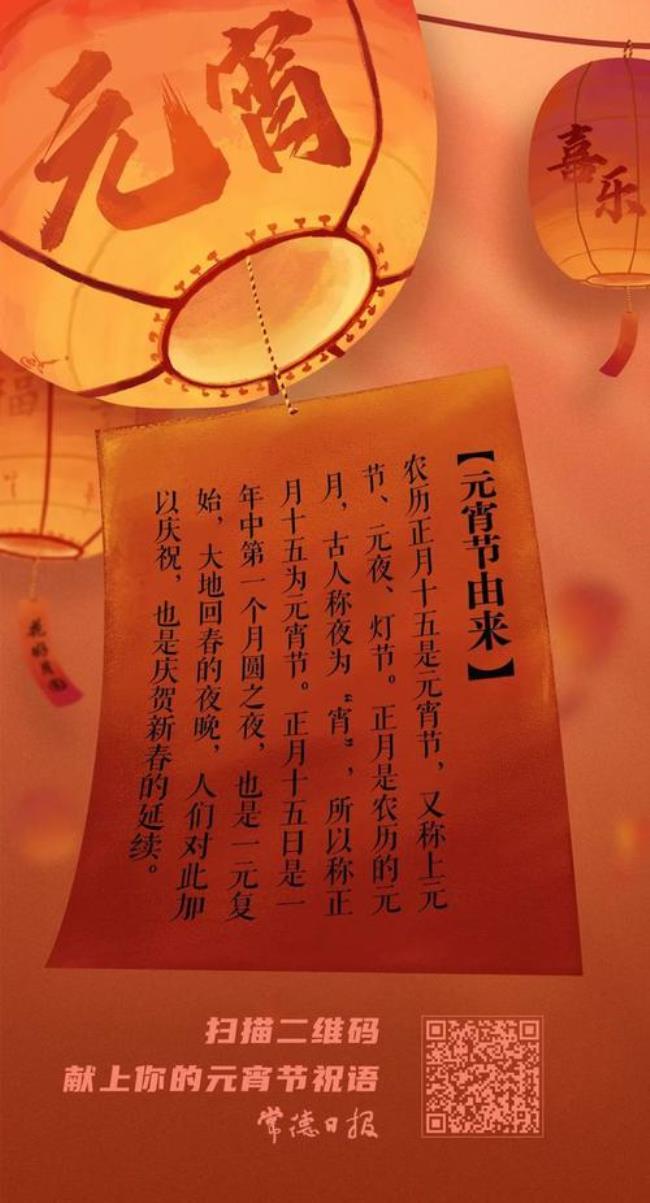 元宵
喜乐
福
花好月圆
【元宵节由来】
农历正月十五是元宵节，又称上元
节、元夜、灯节。正月是农历的元
月，古人称夜为“宵”，所以称正
月十五为元宵节。正月十五日是一
年中第一个月圆之夜，也是一元复
始，大地回春的夜晚，人们对此加
以庆祝，也是庆贺新春的延续。
扫描二维码
献上你的元宵节祝语
常德日报